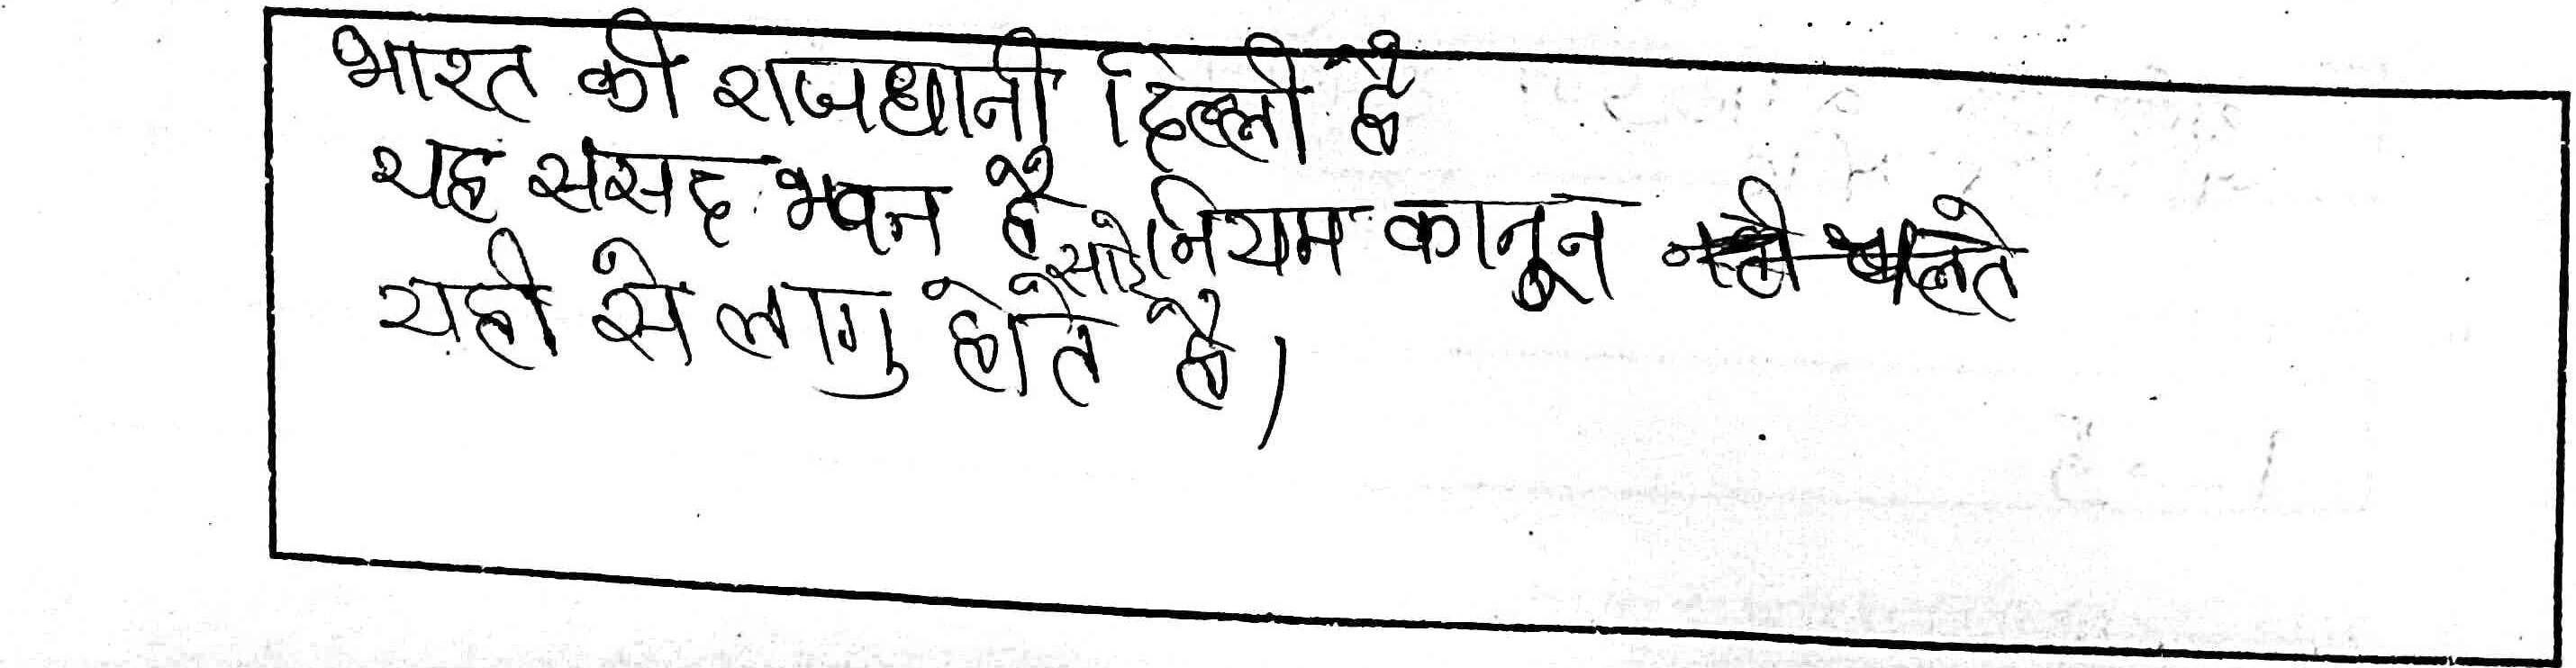 भारत की राजधानी दिल्ली है
यह संसद भवन है सारे नियम कानून
यही से लागु होते है।